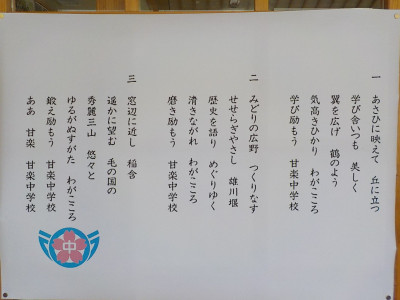 一 あさひに映えて 丘に立つ
学び舎いつも 美しく
翼を広げ 鶴のよう
気高きひかり わがこころ
学び励もう 甘楽中学校
二 みどりの広野 つくりなす
せせらぎやさし 雄川堰
歴史を語り めぐりゆく
清きながれ わがこころ
磨き励もう 甘楽中学校
三 窓辺に近し 稲含
遥かに望む 毛の国の
秀麗三山 悠々と
ゆるがぬすがた わがこころ
鍛え励もう 甘楽中学校
ああ 甘楽 甘楽中学校
中